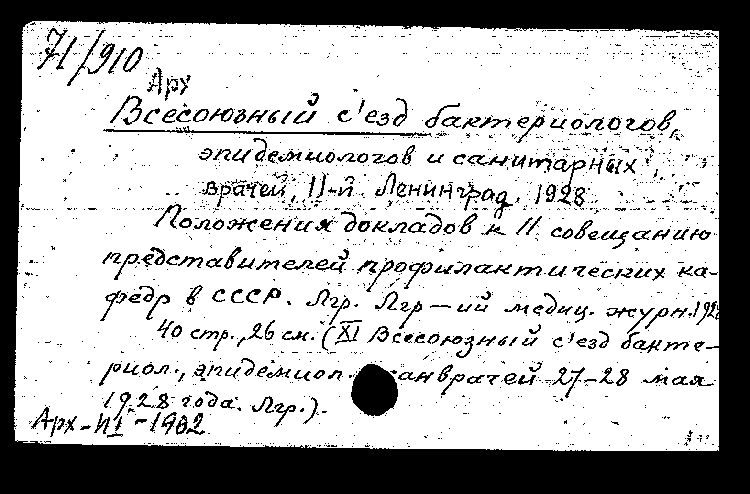 71/910
Арх
Всесоюзный с'езд бактериологов,
эпидемиологов и санитарных
врачей, 11-й Ленинград, 1928
Положения докладов к II совещанию
представителей профилактических ка-
федр в СССР. Лгр. Лгр-ий медиц. журн. 1928
40 стр., 26 см. (XI Всесоюзный с'езд бакте-
риол., эпидемиол. санврачей 27-28 мая
1928 года. Лгр.).